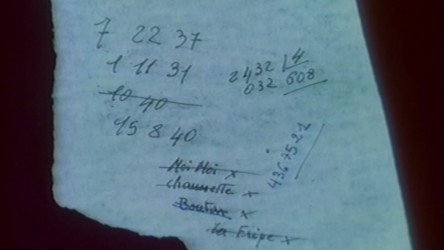 7 22 37
1 11 31
10 40
15 8 40
2432 4
032 608
Moi Moi x
chaussette x
x
La Fripe x